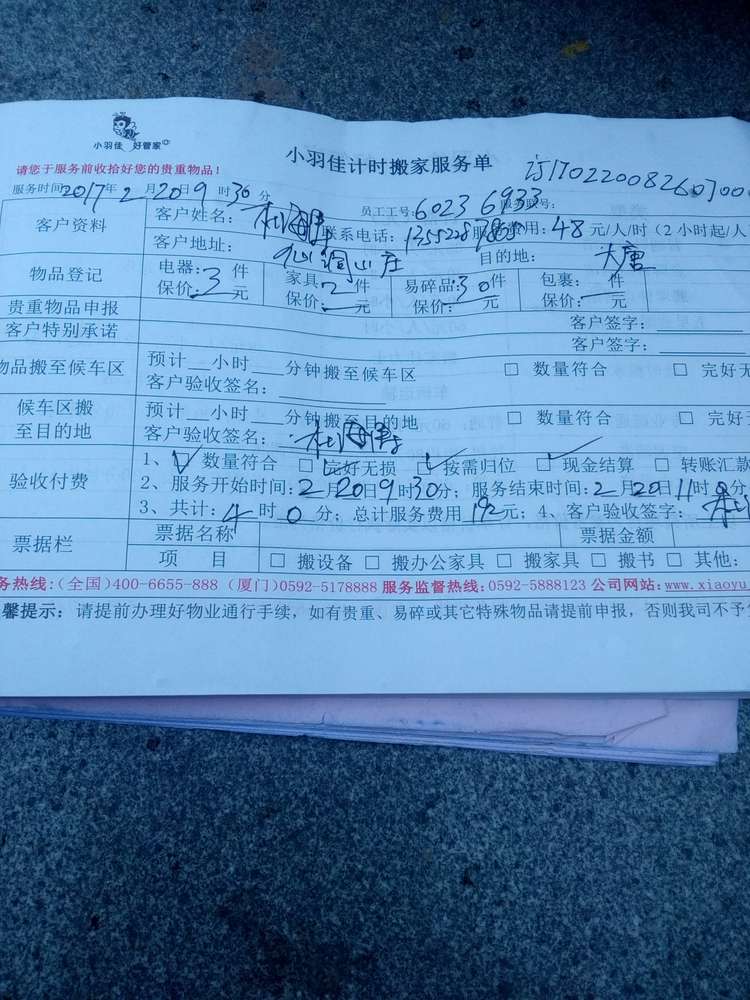 小羽佳 好管家
小羽佳计时搬家服务单
请您于服务前收拾好您的贵重物品!
服务时间2017年2月20日9时30分 员工工号:6023 6933 服务单号:
客户资料
客户姓名: 联系电话: 服务费用:48元/人/时(2小时起/人
客户地址: 山庄 目的地:大唐
物品登记
电器:3件 家具:2件 易碎品:30件 包裹: 件
保价: 元 保价: 元 保价: 元 保价: 元
贵重物品申报 客户签字:
客户特别承诺 客户签字:
物品搬至候车区
预计 小时 分钟搬至候车区 □ 数量符合 □ 完好无
客户验收签名:
候车区搬
至目的地
预计 小时 分钟搬至目的地 □ 数量符合 □ 完好无
客户验收签名:
验收付费
1、□ 数量符合 □ 完好无损 □ 按需归位 □ 现金结算 □ 转账汇款
2、服务开始时间:2月20日9时30分;服务结束时间:2月20日11时 分
3、共计:4时0分;总计服务费用192元;4、客户验收签字:
票据栏
票据名称 票据金额
项 目 □ 搬设备 □ 搬办公家具 □ 搬家具 □ 搬书 □ 其他:
务热线:(全国)400-6655-888 (厦门)0592-5178888 服务监督热线:0592-5888123 公司网站:www.xiaoyu
馨提示:请提前办理好物业通行手续,如有贵重、易碎或其它特殊物品请提前申报,否则我司不予